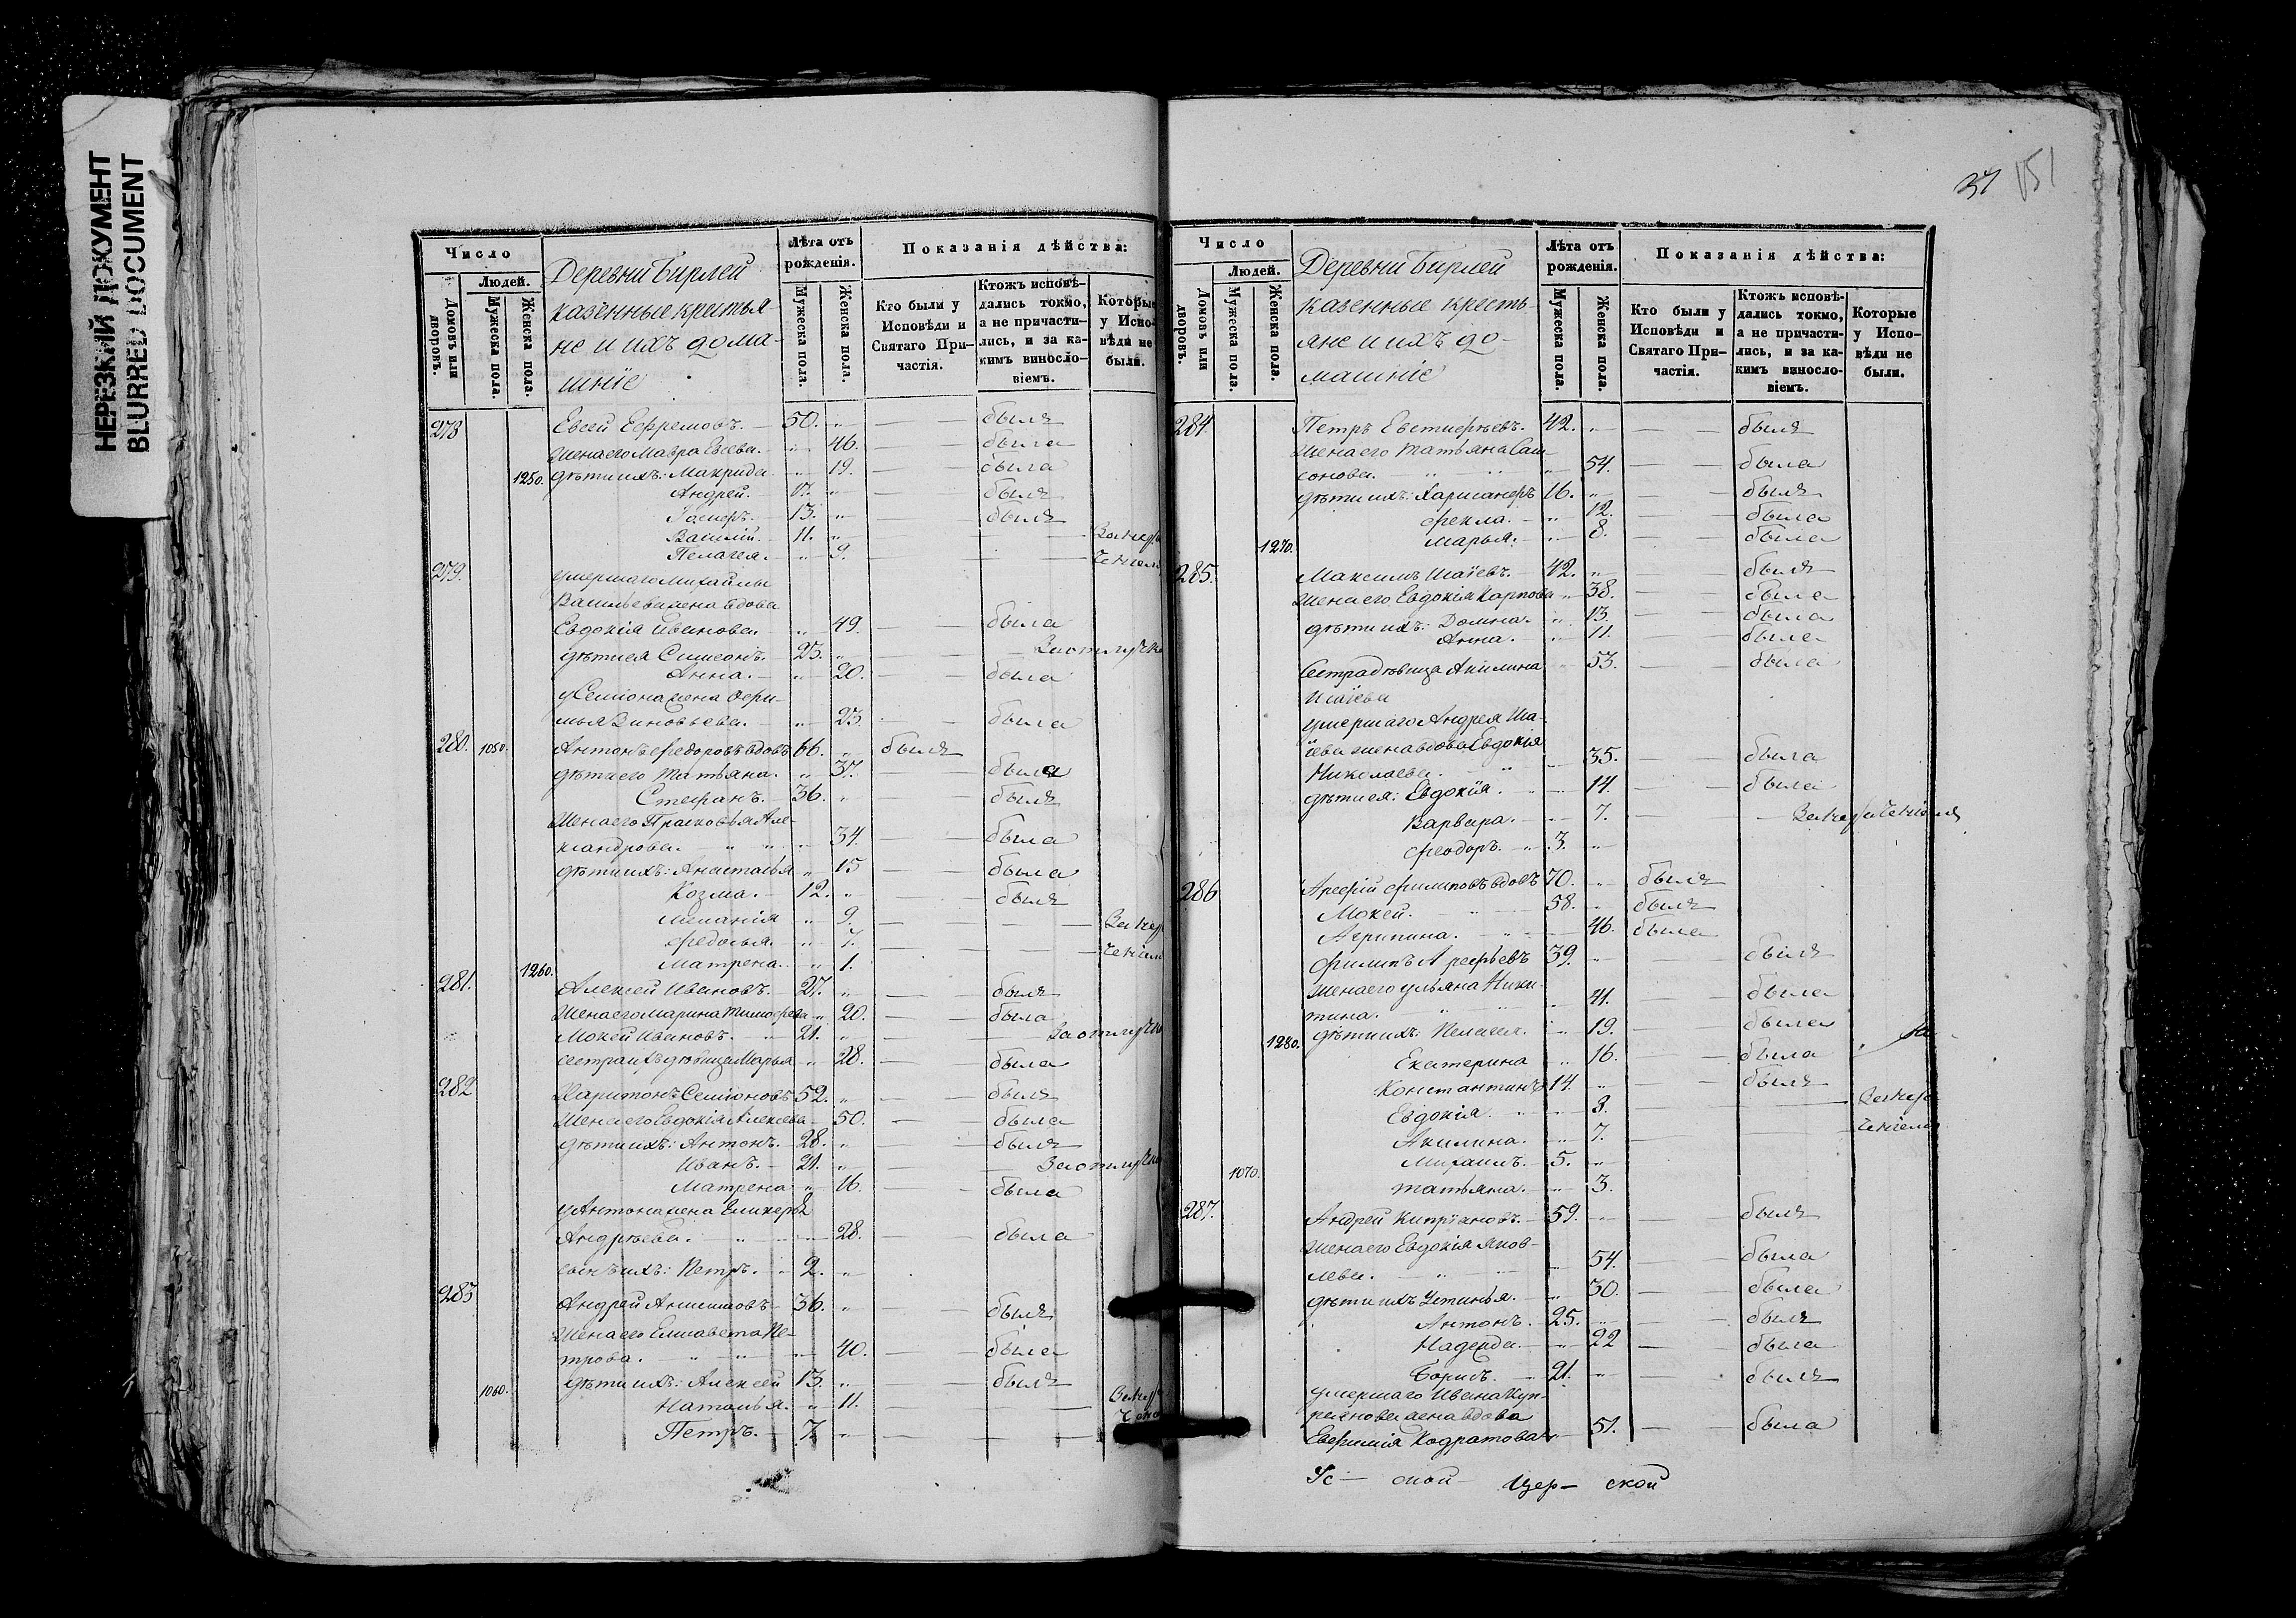 НЕРЕЗКИЙ ДОКУМЕНТ
BLURRED DOCUMENT
Число
Людей.
Домовъ или дворовъ.
Мужеска пола.
Женска пола.
Деревни Бирлей
казенные крестья-
не и ихъ дома-
шніе
Лѣта отъ рожденія.
Мужеска пола.
Женска пола.
Показанія дѣйства:
Кто были у Исповѣди и Святаго Причастія.
Ктожъ исповѣдались токмо, а не причастились, и за какимъ винословіемъ.
Которые у Исповѣди не были.
278 Евсей Ефремовъ. 50. были
жена его Мавра Евсева. 46. была
1250. дѣти ихъ: Макрида 19. была
Андрей. 17. былъ
13. былъ
Василій. 11.
Пелагея. 9.
279. умершаго Михайлы
Васильева жена вдова
Евдокія Иванова 49. была
дѣти ея Симеонъ. 23. За отлучк
Анна. 20. была
у Семіона жена Ефи-
мья Зиновьева. 23. была
280. 1050. Антонъ Федоровъ вдовъ 66. былъ
дѣти его Татьяна. 37. была
Стефанъ. 36. былъ
жена его Прасковья Але-
ксандрова. 34. была
дѣти ихъ: Анастасья 15 была
Козма. 12. былъ
Меланія 9.
Федосья. 7.
1260. Матрена. 1.
281. Алексей Ивановъ. 27. былъ
жена его Марина Тимофеева 20. была
Мокей Ивановъ. 21. За отлучк
сестра ихъ дѣвица Марья 28. была
282 Харитонъ Семіоновъ 52. былъ
жена его Евдокія Алексева 50. была
дѣти ихъ: Антонъ. 28. былъ
Иванъ. 21. За отлучк
Матрена 16. была
у Антона жена Гликерія
Андрѣева. 28. была
сынъ ихъ: Петръ. 2.
283 Андрей Анисимовъ 36. былъ
жена его Елисавета Пе-
трова. 40. была
1060. дѣти ихъ: Алексей 13. былъ
Наталья. 11.
Петръ. 7
37 151
Число
Людей.
Домовъ или дворовъ.
Мужеска пола.
Женска пола.
Деревни Бирлей
казенные кресть-
яне и ихъ до-
машніе
Лѣта отъ рожденія.
Мужеска пола.
Женска пола.
Показанія дѣйства:
Кто были у Исповѣди и Святаго Причастія.
Ктожъ исповѣдались токмо, а не причастились, и за какимъ винословіемъ.
Которые у Исповѣди не были.
284. Петръ Евстифѣевъ. 42. былъ
жена его Татьяна Сам-
сонова. 54. была
дѣти ихъ: 16. былъ
Фекла. 12. была
1270. Марья. 8. была
285. Максимъ Исаіевъ. 42. былъ
жена его Евдокія Карпова 38. была
дѣти ихъ: Домна. 13. была
Анна. 11. была
Сестра дѣвица Акилина 53. была
Исаіева
умершаго Андрея Иса-
іева жена вдова Евдокія
Николаева. 35. была
дѣти ея: Евдокія. 14. была
Варвара. 7.
Феодоръ. 3.
286 Арефій Филиповъ вдовъ 70. былъ
Мокей. 58. былъ
Агрипина. 46. была
Филипъ Арефьевъ 39. былъ
жена его Ульяна Ники-
тина. 41. была
1280. дѣти ихъ: Пелагея. 19. была
Екатерина 16. была
Константинъ 14. былъ
Евдокія. 8.
Акилина. 7.
1070. Михаилъ. 5.
Татьяна. 3.
287. Андрей Кипріановъ. 59. былъ
жена его Евдокія Яков-
лева. 54. была
дѣти ихъ Устинья. 30. была
Антонъ. 25. былъ
Надежда. 22 была
Борисъ. 21. былъ
умершаго Ивана Куп-
реянова жена вдова
Евфимія Кодратова 51. была
Ус— ской— Цер— ской